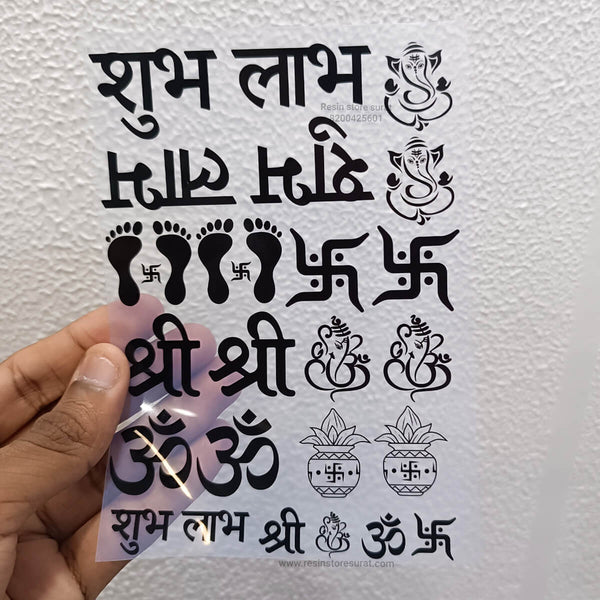 शुभ लाभ
Resin store surat
शुभ लाभ
श्री श्री
ॐ ॐ
शुभ लाभ श्री ॐ
www.resinstoresurat.com